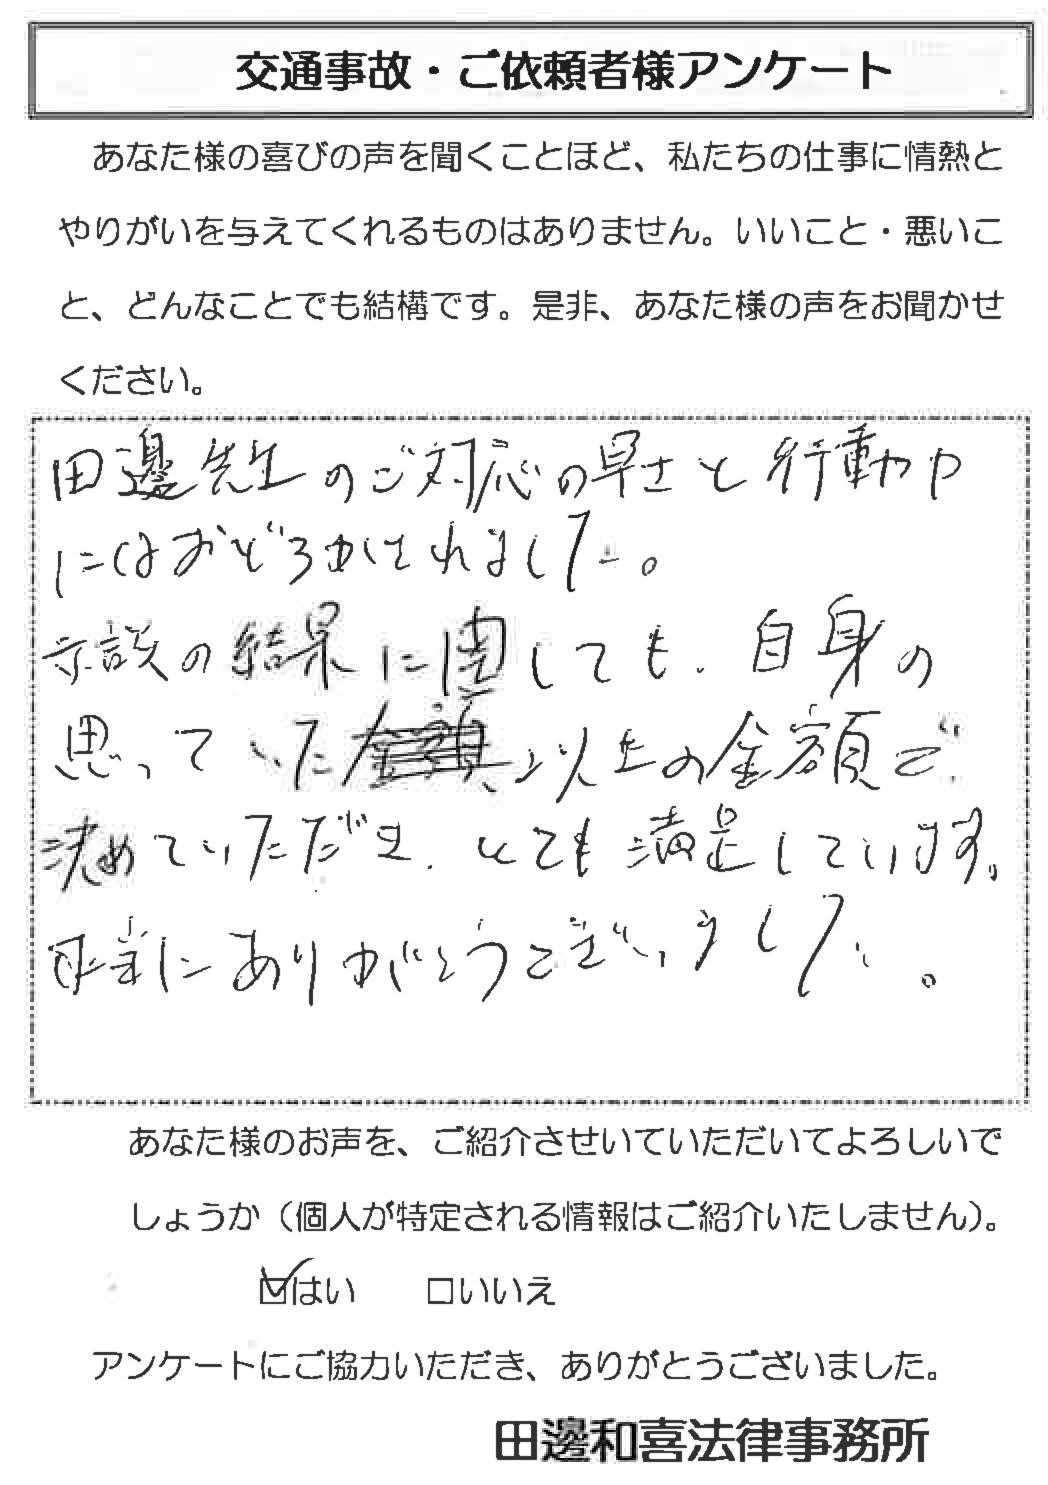 交通事故・ご依頼者様アンケート
あなた様の喜びの声を聞くことほど、私たちの仕事に情熱と
やりがいを与えてくれるものはありません。いいこと・悪いこ
と、どんなことでも結構です。是非、あなた様の声をお聞かせ
ください。
田邊先生のご対応の早さと行動力
にはおどろかされました。
示談の結果に関しても、自身の
思っていた金額以上の金額で
決めていただき、とても満足しています。
本当にありがとうございました。
あなた様のお声を、ご紹介させいていただいてよろしいで
しょうか（個人が特定される情報はご紹介いたしません）。
☑はい　□いいえ
アンケートにご協力いただき、ありがとうございました。
田邊和喜法律事務所